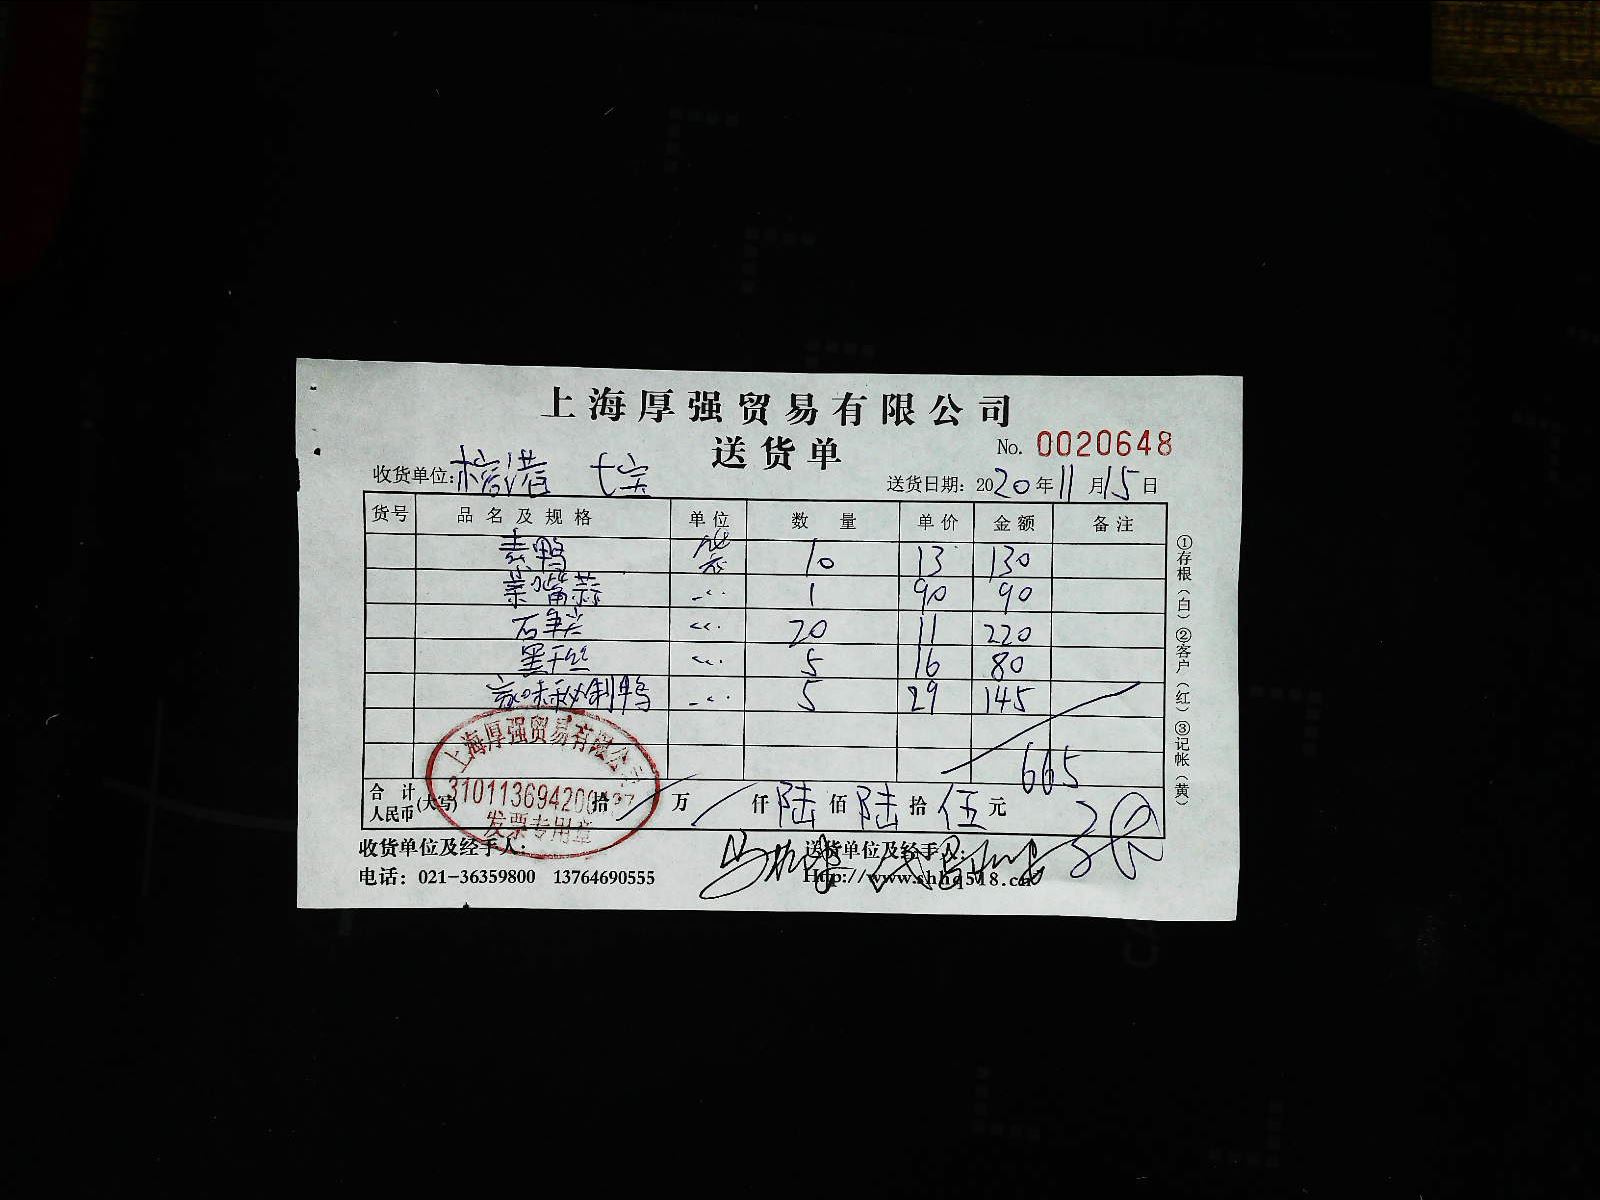 上海厚强贸易有限公司
送货单 No. 0020648
收货单位: 港 七宝 送货日期: 2020年11月15日
货号 品名及规格 单位 数量 单价 金额 备注
素鸭 袋 10 13 130
菜 蒜 〃 1 90 90
石 〃 20 11 220
黑干丝 〃 5 16 80
味秘制鸭 〃 5 29 145
665
合计人民币(大写) 拾 万 仟 陆 佰 陆 拾 伍 元
上海厚强贸易有限公司
310113694200
发票专用章
收货单位及经手人: 送货单位及经手人:
电话: 021-36359800 13764690555 Http://www.shhq518.cn
①存根(白)②客户(红)③记帐(黄)